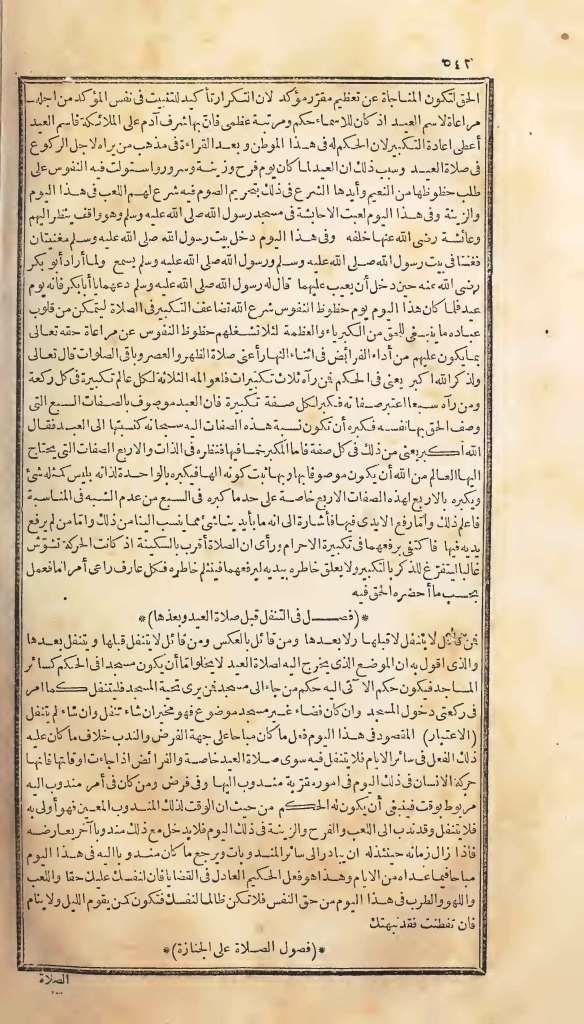 ٥٤٢
الحق لتكون المناجاة عن تعظيم مقرر مؤكد لان التكرار تأكيد للتثبيت فى نفس المؤكد من اجله
مراعاة لاسم العيد اذ كان للاسماء حكم ومرتبة عظمى فان بها شرف آدم على الملائكة فاسم العيد
أعطى اعادة التكبير لان الحكم له فى هذا الموطن وبعد القراءة فى مذهب من يراه لاجل الركوع
فى صلاة العيد وسبب ذلك ان العيد لما كان يوم فرح وزينة وسرور واستولت فيه النفوس على
طلب حظوظها من النعيم وأيدها الشرع فى ذلك بتحريم الصوم فيه شرع لهم اللعب فى هذا اليوم
والزينة وفى هذا اليوم لعبت الاحابشة فى مسجد رسول الله صلى الله عليه وسلم وهو واقف ينظر اليهم
وعائشة رضى الله عنها خلفه وفى هذا اليوم دخل بيت رسول الله صلى الله عليه وسلم مغنيتان
فغنتا فى بيت رسول الله صلى الله عليه وسلم ورسول الله صلى الله عليه وسلم يسمع ولما أراد أبو بكر
رضى الله عنه حين دخل أن يعيب عليهما قال له رسول الله صلى الله عليه وسلم دعهما يا أبا بكر فانه يوم
عيد فلما كان هذا اليوم يوم حظوظ النفوس شرع الله تضاعف التكبير فى الصلاة ليتمكن من قلوب
عباده ما ينبغى للحق من الكبرياء والعظمة لئلا تشغلهم حظوظ النفوس عن مراعاة حقه تعالى
بما يكون عليهم من أداء الفرائض فى اثناء النهار أعنى صلاة الظهر والعصر وباقى الصلوات قال تعالى
ولذكر الله اكبر يعنى فى الحكم فمن رآه ثلاث تكبيرات فلعوالمه الثلاثة لكل عالم تكبيرة فى كل ركعة
ومن رآه سبعا اعتبر صفاته فكبر لكل صفة تكبيرة فان العبد موصوف بالصفات السبع التى
وصف الحق بها نفسه فكبره أن تكون نسبة هذه الصفات اليه سبحانه كنسبتها الى العبد فقال
الله أكبر يعنى من ذلك فى كل صفة فاما المكبر خمسا فيها فنظره فى الذات والاربع الصفات التى يحتاج
اليها العالم من الله أن يكون موصوفا بها وبها ثبت كونه الها فيكبره بالواحدة لذاته بليس كمثله شئ
ويكبره بالاربع لهذه الصفات الاربع خاصة على حد ما كبره فى السبع من عدم الشبه فى المناسبة
فاعلم ذلك وامّا رفع الايدى فيها فأشارة الى انه ما بأيدينا شئ مما ينسب الينا من ذلك وامّا من لم يرفع
يديه فيها فاكتفى برفعهما فى تكبيرة الاحرام ورأى ان الصلاة أقرب بالسكينة اذ كانت الحركة تشوّش
غالبا ليتفرّغ للذكر بالتكبير ولا يعلق خاطره بيديه ليرفعهما فينقسم خاطره فكل عارف راعى أمرا ما فعمل
بحسب ما أحضره الحق فيه
*(فصـــل فى التنفل قبل صلاة العيد وبعدها)*
فمن قائل لا يتنفل لا قبلها ولا بعدها ومن قائل بالعكس ومن قائل لا يتنفل قبلها ويتنفل بعدها
والذى اقول به ان الموضع الذى يخرج اليه لصلاة العيد لا يخلو امّا أن يكون مسجدا فى الحكم كسائر
المساجد فيكون حكم الآتى اليه حكم من جاء الى مسجد فمن يرى تحية المسجد فليتنفل كما امر
فى ركعتى دخول المسجد وان كان فضاء غير مسجد موضوع فهو مخير ان شاء تنفل وان شاء لم يتنفل
(الاعتبار) المقصود فى هذا اليوم فعل ما كان مباحا على جهة الفرض والندب خلاف ما كان عليه
ذلك الفعل فى سائر الايام فلا يتنفل فيه سوى صلاة العيد خاصة والفرائض اذا جاءت اوقاتها فانها
حركة الانسان فى ذلك اليوم فى امور مقرّبة مندوب اليها وفى فرض ومن كان فى أمر مندوب اليه
مربوط بوقت فينبغى أن يكون له الحكم من حيث ان الوقت لذلك المندوب المعين فهو أولى به
فلا يتنفل وقد ندب الى اللعب والفرح والزينة فى ذلك اليوم فلا يدخل مع ذلك مندوبا آخر يعارضه
فاذا زال زمانه حينئذ له ان يبادر الى سائر المندوبات ويرجع ما كان مندوبا اليه فى هذا اليوم
مباحا فيما عداه من الايام وهذا هو فعل الحكيم العادل فى القضايا فان لنفسك عليك حقا واللعب
واللهو والطرب فى هذا اليوم من حق النفس فلا تكن ظالما لنفسك فتكون كمن يقوم الليل ولا ينام
فان تفطنت فقد نبهتك
*(فصول الصلاة على الجنازة)*
الصلاة